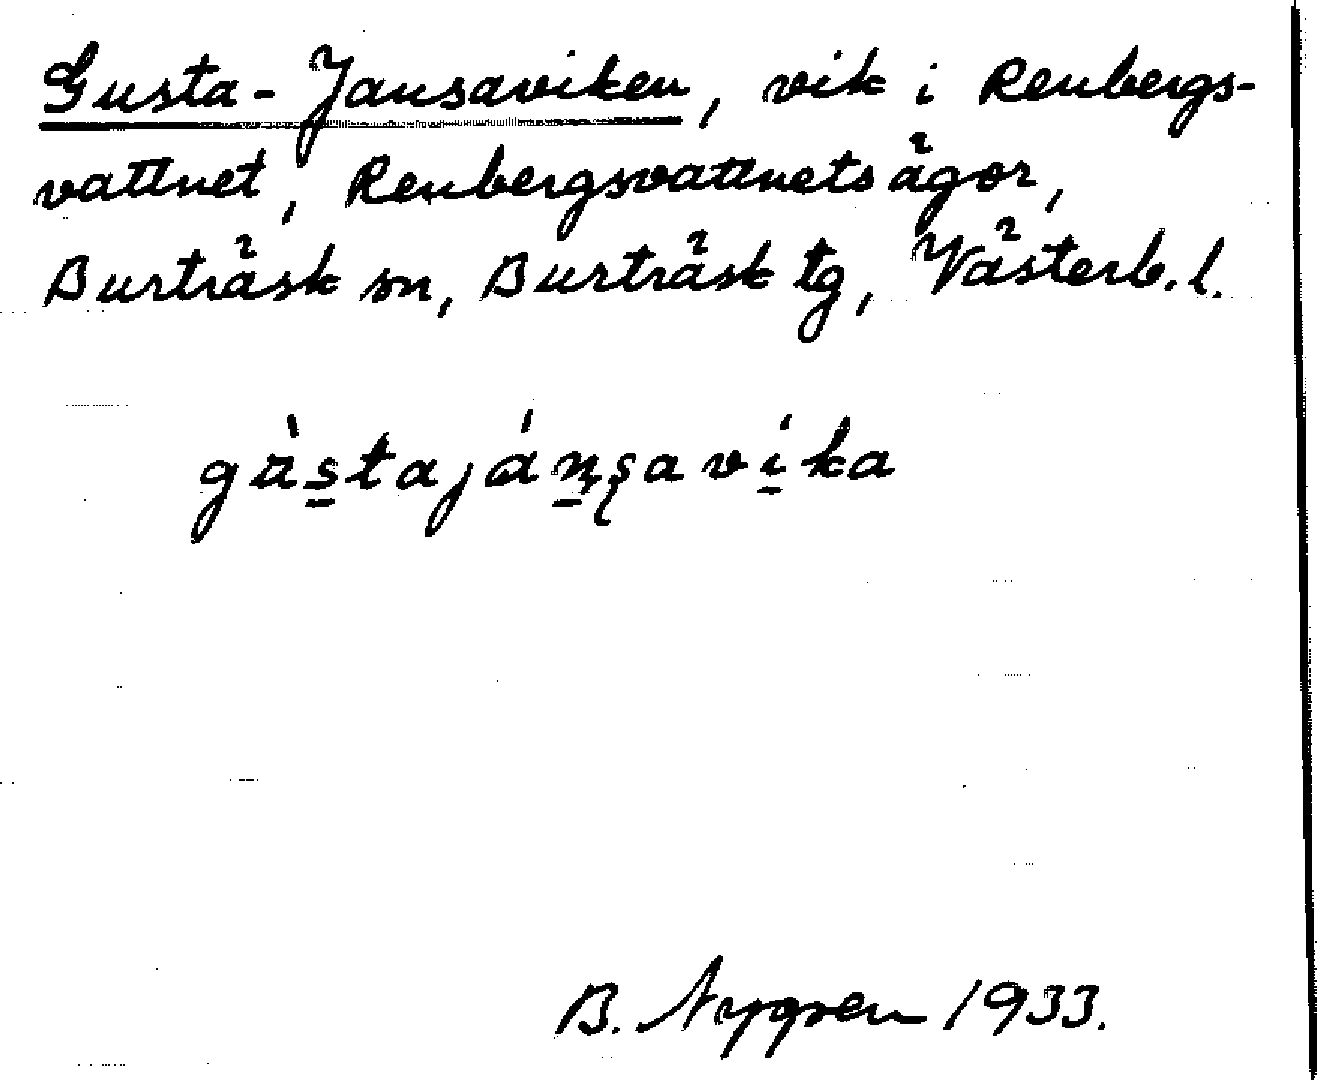 Gusta-Jansaviken, vik i Renbergs-
vattnet, Renbergsvattnets ägor,
Burträsk sn, Burträsk tg, Västerb. l.
gùstajánsavíka
B. Nygren 1933.